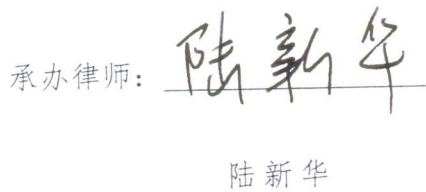 承办律师：陆新华
陆新华